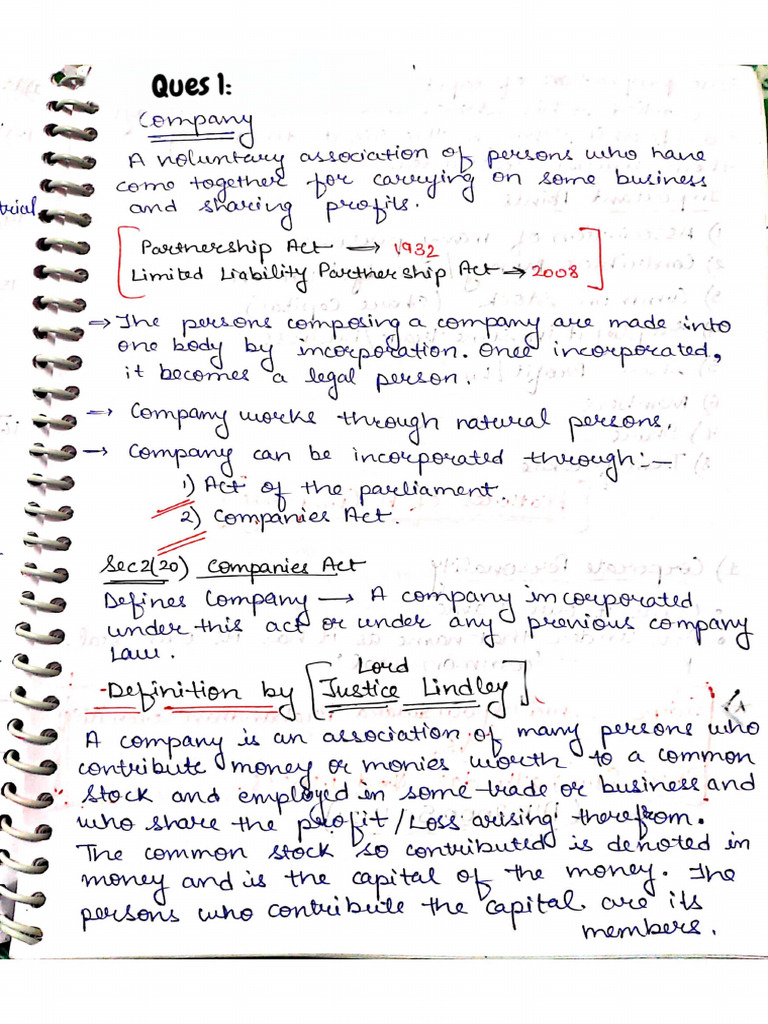 Ques 1:
Company
A voluntary association of persons who have
come together for carrying on some business
trial
and sharing profits.
Partnership Act → 1932
Limited Liability Partnership Act → 2008
→ The persons composing a company are made into
one body by incorporation. Once incorporated,
it becomes a legal person.
→ Company works through natural persons.
→ Company can be incorporated through:-
1) Act of the parliament.
2) Companies Act.
Sec2(20) Companies Act
Defines Company → A company incorporated
under this act or under any previous company
Law.
Lord
- Definition by [Justice Lindley]
A company is an association of many persons who
contribute money or monies worth to a common
stock and employed in some trade or business and
who share the profit/Loss arising therefrom.
The common stock so contributed is denoted in
money and is the capital of the money. The
persons who contribute the capital are its
members.